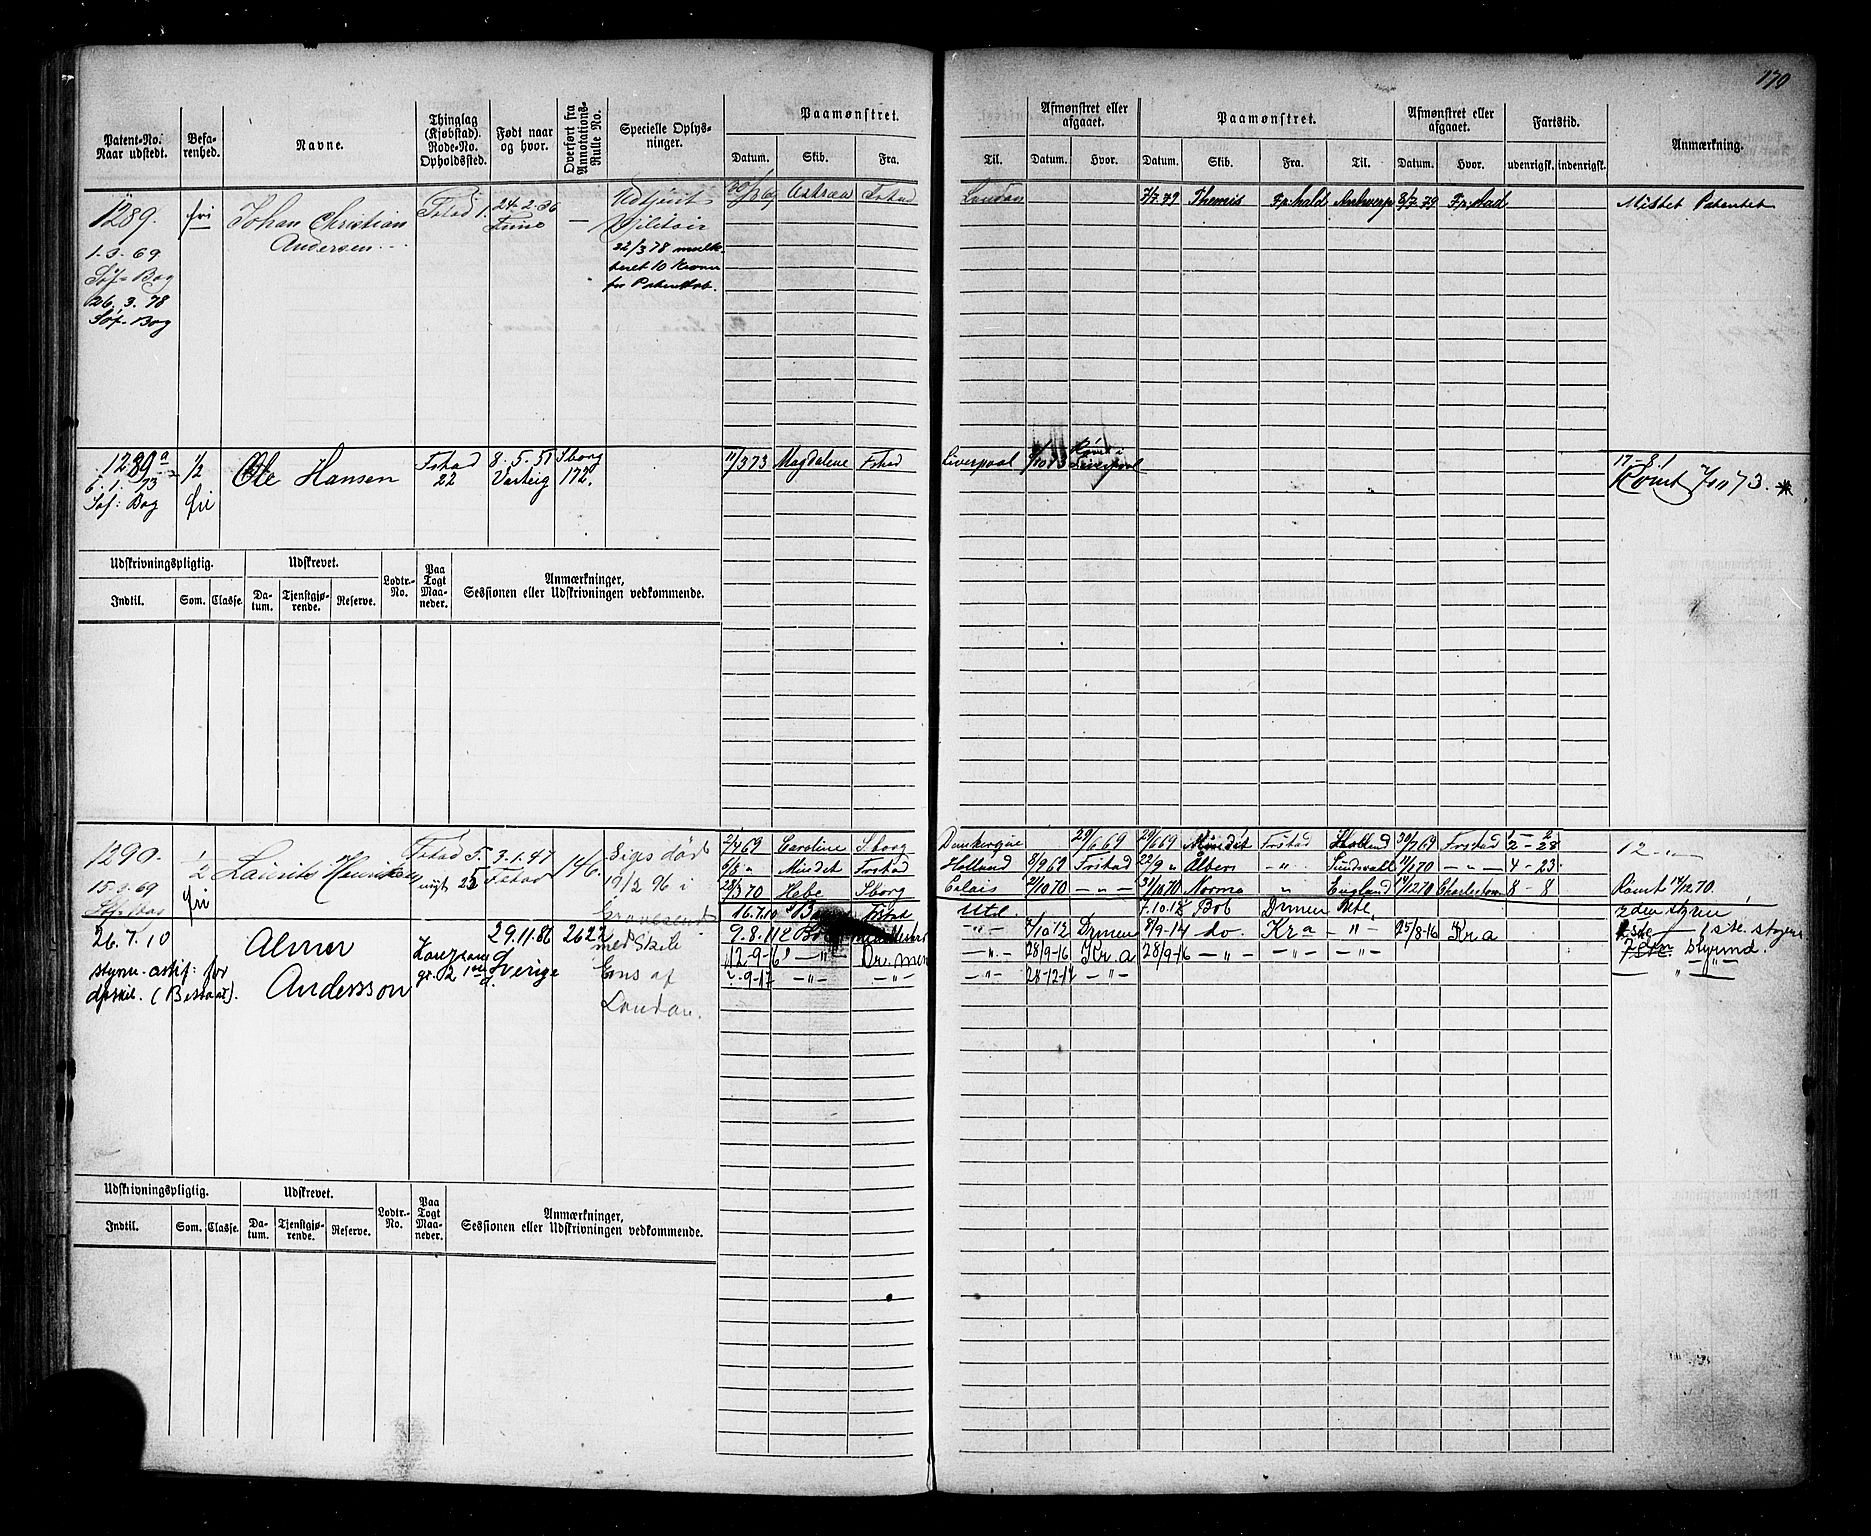 170
Patent-No. Naar udstedt.
Befa-renhed.
Navne.
Thinglag (Kjøbstad). Rode-No. Opholdssted.
Født naar og hvor.
Overført fra Annotations-Rulle No.
Specielle Oplys-ninger.
Paamønstret.
Datum. Skib. Fra. Til.
Afmønstret eller afgaaet.
Datum. Hvor.
Paamønstret.
Datum. Skib. Fra. Til.
Afmønstret eller afgaaet.
Datum. Hvor.
Fartstid.
udenrigsk. indenrigsk.
Anmærkning.
1289.
fri
Johan Christian
Andersen
Fstad 1.
24.2.36
—
Udtjent
Militair
22/3 78 mulk-
teret 10 Kroner
1.3.69
Søf: Bog
26.3.78
Søf-Bog
Astræa Fstad
London
7/7.79 Themis Fr.hald Antwerp 8/7.79 Fr.stad
Mistet Patentet
1289 a
6.1.73
Søf: Bog
1/2
fri
Ole Hansen
Fstad
22
8.5.51
Varteig
Sborg
172.
11/3 73 Magdalene Fstad
Liverpool
Liverpool
17-8-1
Rømt 7/10 73. *
Udskrivningspligtig.
Indtil. Som. Classe.
Udskrevet.
Da-tum. Tjenstgjø-rende. Reserve.
Lodtr.-No.
Paa Togt Maa-neder.
Anmærkninger,
Sessionen eller Udskrivningen vedkommende.
1290.
15.3.69
1/2
fri
Laurits Henriksen
Fstad 5.
3.1.47
Fstad
146.
Siges død
19/2 96 i
Gravesend
med Skib
Ens af
London.
2/4 69 Caroline Sborg
Dunkerque 29/6 69
29/6 69 Mindet Frstad Holland 30/7 69 Frstad 2-28
6/8 " Mindet Frstad
Holland 8/9 69 Frstad
22/9 " Albert -"- Sundsvall 11/1 70 -"- 4-23
28/3 70 Hebe Sborg
Calais 21/10 70 -"-
31/10 70 Norma " England 14/12 70 Charleston 8-8
Rømt 14/12 70.
26.7.10
styrm. astif: for
dpskib. (Bestaaet).
Almer
Andersson
29.11.86
Sverige
2622
16.7.10 Frstad
Utl.
7.10.12 Bob Drmen Utl.
2den styrm
9.8.11
-"- 7/10 12 Drmen
8/9-14 do. Kr.a -"- 25/8-16 Kr.a
12-9-16 -"- Dr.men
-"- 28/9-16 Kr.a
28/9-16 -"- -"- -"-
styrmd.
-9-17 -"- -"-
-"- 28-12-17 -"-
Udskrivningspligtig.
Indtil. Som. Classe.
Udskrevet.
Da-tum. Tjenstgjø-rende. Reserve.
Lodtr.-No.
Paa Togt Maa-neder.
Anmærkninger,
Sessionen eller Udskrivningen vedkommende.